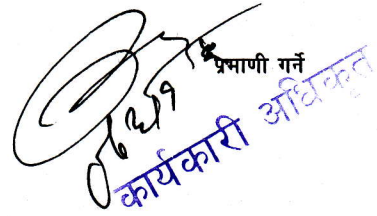 प्रमाणी गर्ने
कार्यकारी अधिकृत